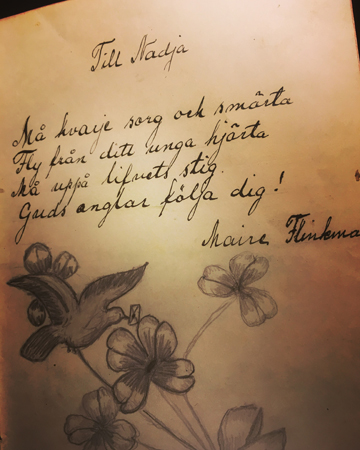 Till Nadja
Må hvarje sorg och smärta
Fly från ditt unga hjärta
Må uppå lifvets stig.
Guds änglar följa dig!
Maire Flinkma